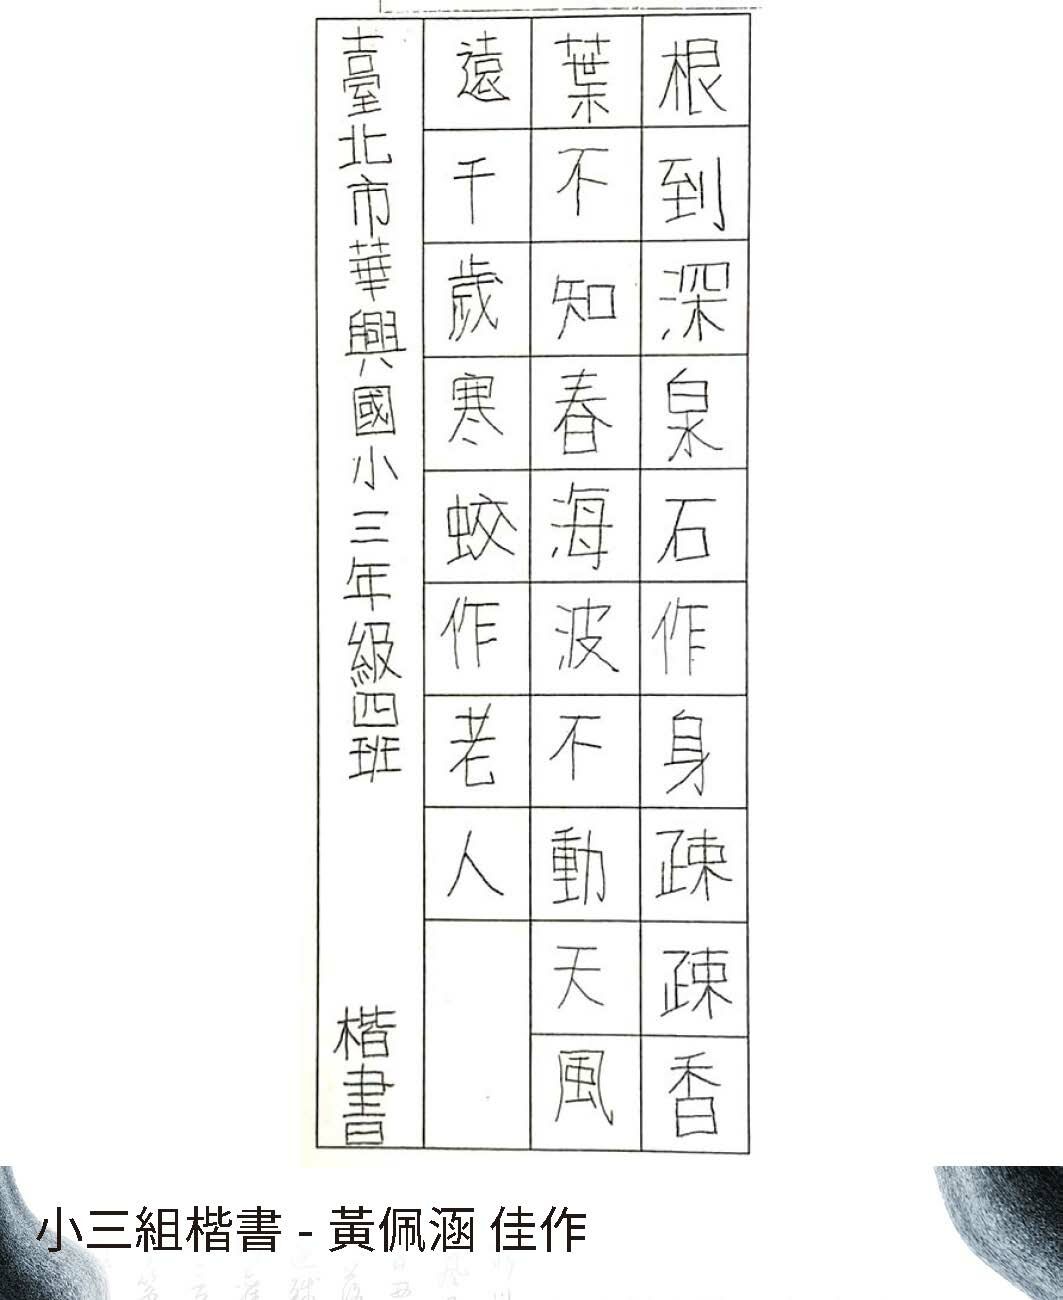 根到深泉石作身疎疎香
葉不知春海波不動天風
遠千歲寒蛟作老人
臺北市華興國小三年級四班 楷書
小三組楷書 - 黃佩涵 佳作